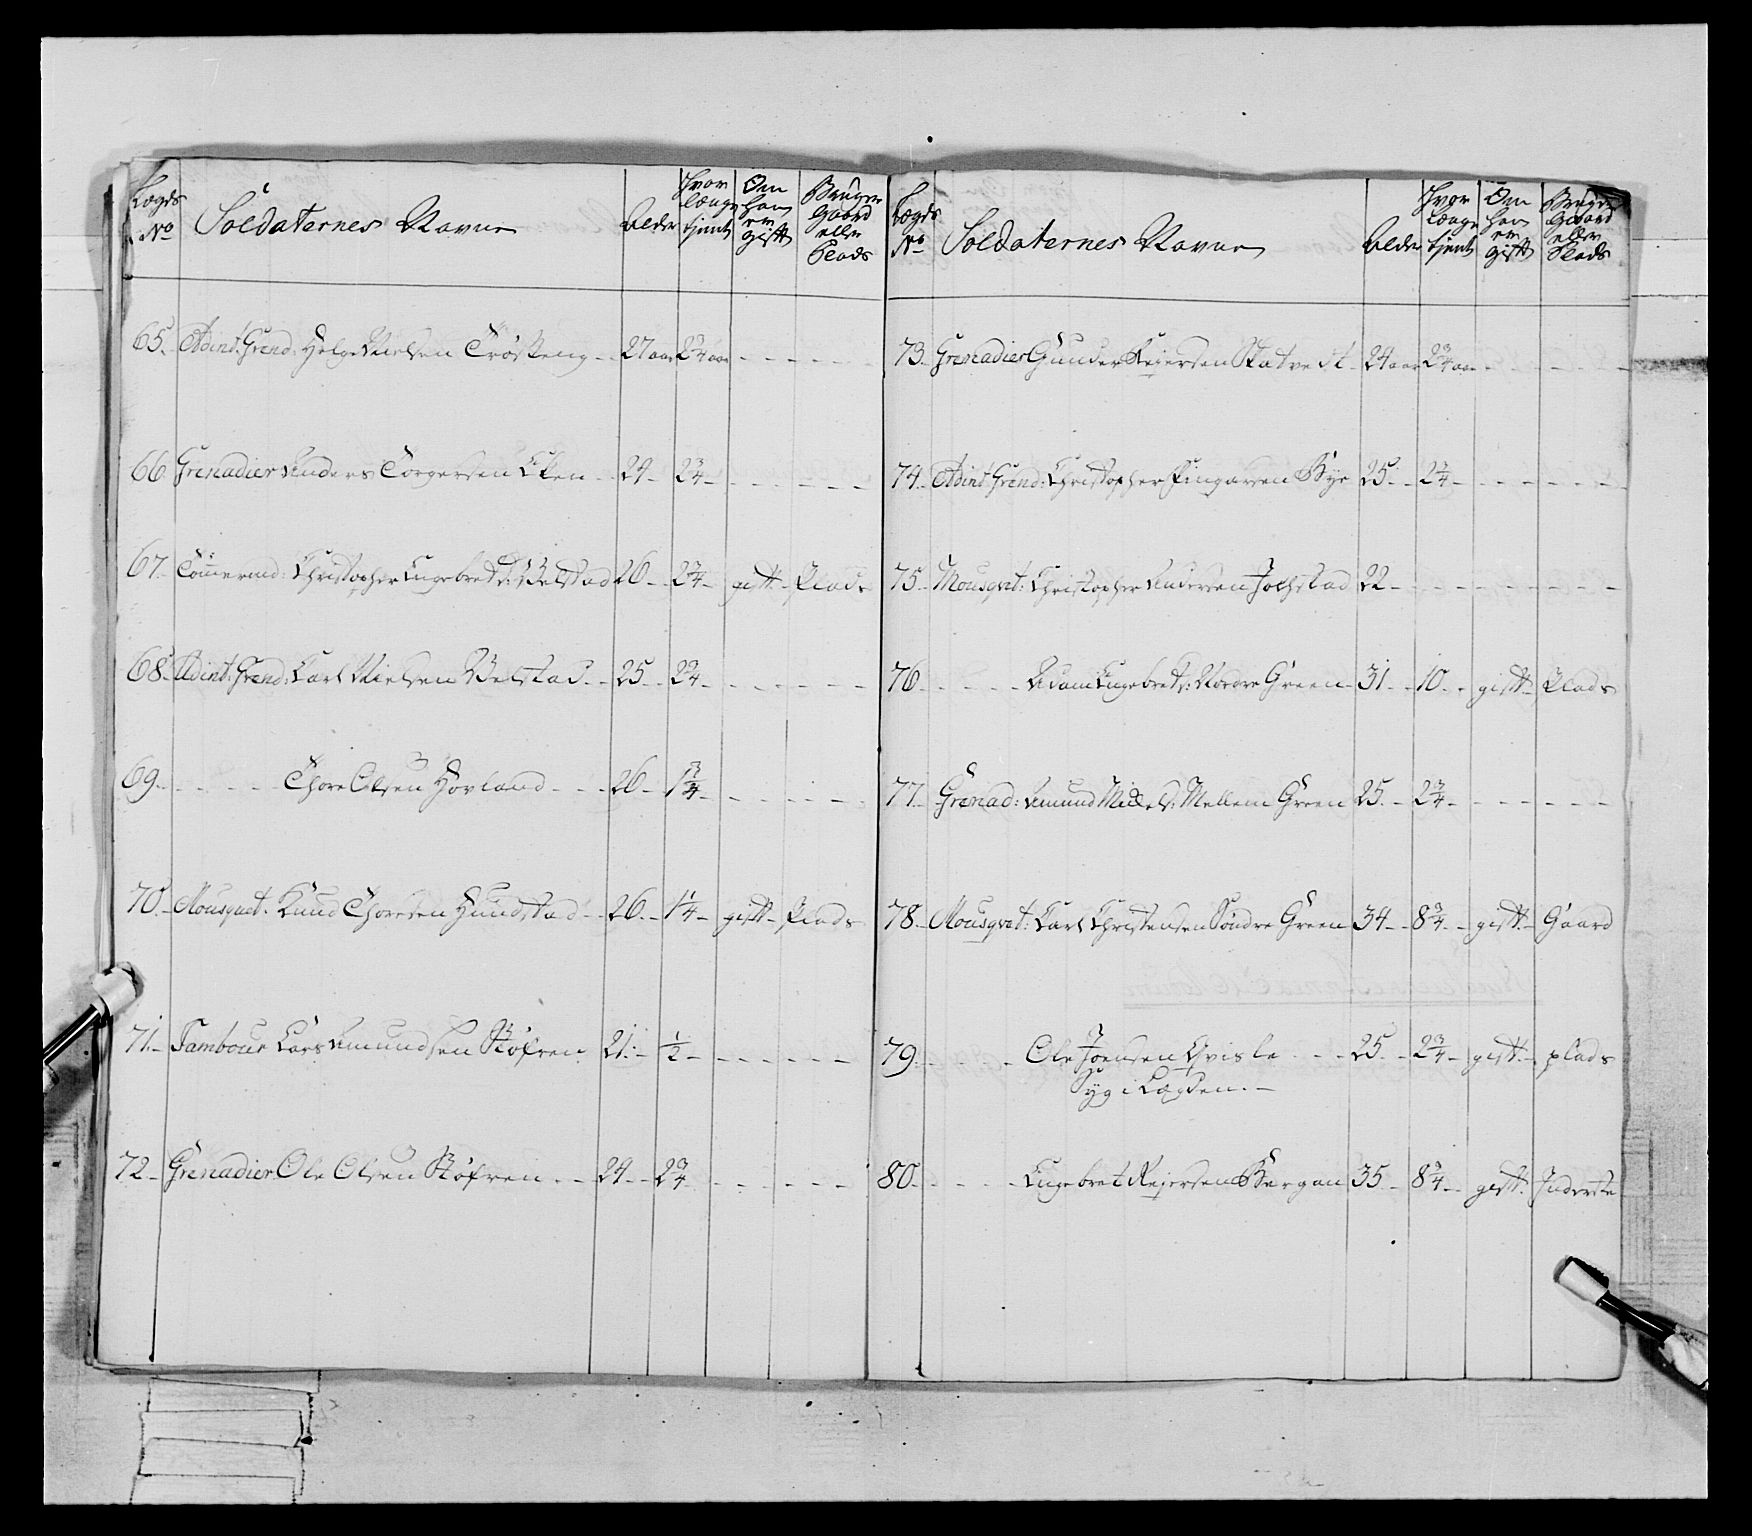 Lægds No Soldaternes Navne Alder Hvor længe tjent Om han er gift Bruger Gaard eller Plads
65. Adint: Grend: Helge Nielsen Trøsteng - 27 aar 2 3/4 aar - - - - -
66. Grenadier Anders Torgersen Eken - 24 - 2 3/4 - - - - - -
67. Tömermd: Christopher Engebrets: Velstad 26 - 2 3/4 - gift - Plads
68. Adint: Grend: Carl Nielsen Velstad - 25 - 2 3/4 - - - - - -
69. - - - - Thore Olsen Hovland - - - 26 - 1 3/4 - - - - - -
70. Mousquet: Knud Thoresen Hundstad - 26 - 1 1/4 - gift - Plads
71. Tambour Lars Amundsen Støfren 21 - 1/2 - - - - - -
72. Grenadier Ole Olsen Støfren - - 24 - 2 3/4 - - - - - -
Lægds No Soldaternes Navne Alder Hvor længe tjent Om han er gift Bruger Gaard eller Plads
73. Grenadier Gunder Reiersen Skatvedt - 24 aar 2 3/4 aar - - - - -
74. Adint Grend: Christopher Fingarsen Bye 25 - 2 3/4 - - - - - -
75. Mousqvet: Christopher Andersen Jolhstad 22 - - - - - - - -
76 - - - - - Adam Engebrets: Nordre Green - 31 - 10 - gift - Plads
77. Grenad: Amund Mickels: Mellem Green 25 - 2 3/4 - - - - - -
78. Mousqvet: Carl Christensen Søndre Green 34 - 8 3/4 - gift - Gaard
79. - - - - Ole Joensen Qvisle - - - 25 - 2 3/4 - gift - plads
Syg i Lægden. -
80. - - - - Engebret Reiersen Bergan 35 - 8 3/4 - gift. Inderste